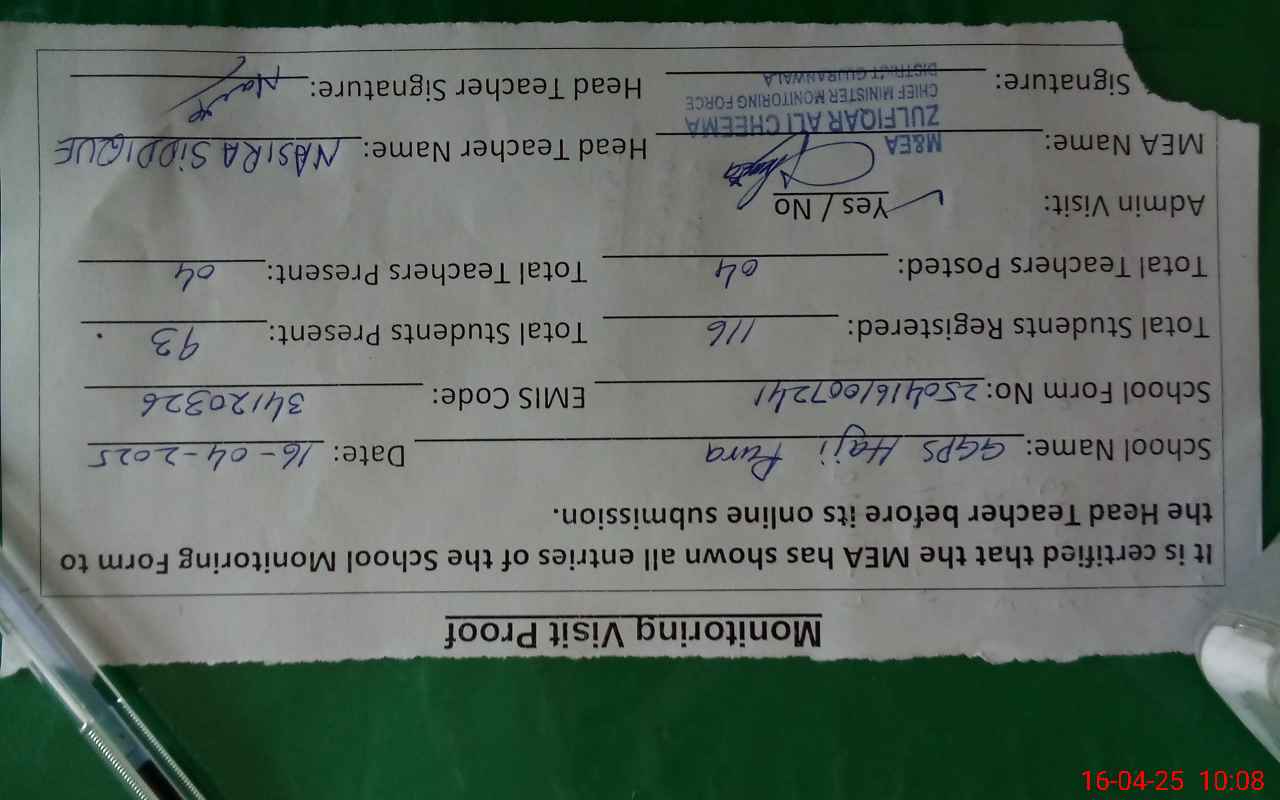 Monitoring Visit Proof
It is certified that the MEA has shown all entries of the School Monitoring Form to
the Head Teacher before its online submission.
School Name: GGPS Haji Pura Date: 16-04-2025
School Form No: 250416161007241 EMIS Code: 34120326
Total Students Registered: 116 Total Students Present: 93
Total Teachers Posted: 04 Total Teachers Present: 04
Admin Visit: Yes / No
MEA Name: Head Teacher Name: NASIRA SIDDIQUE
M&EA
ZULFIQAR ALI CHEEMA
CHIEF MINISTER MONITORING FORCE
DISTRICT GUJRANWALA
Signature: Head Teacher Signature:
16-04-25 10:08